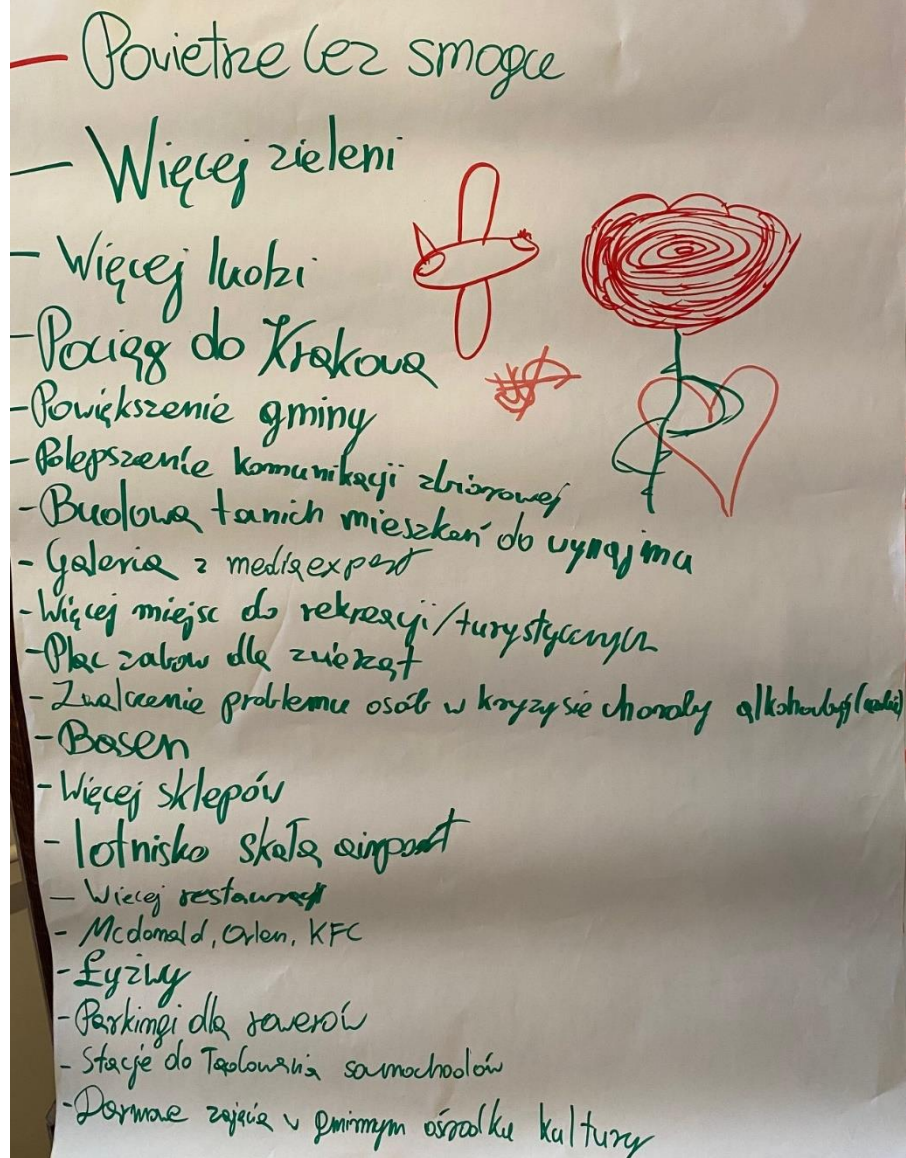 - Powietrze bez smogu
- Więcej zieleni
- Więcej ludzi
- Pociąg do Krakowa
- Powiększenie gminy
- Polepszenie komunikacji zbiorowej
- Budowa tanich mieszkań do wynajmu
- Galeria z mediaexpert
- Więcej miejsc do rekreacji/turystycznych
- Plac zabaw dla zwierząt
- Zwalczenie problemu osób w kryzysie choroby
- Basen
- Więcej sklepów
- lotnisko skała airport
- Więcej restauracji
- Mcdonald, Orlen, KFC
- Łyżwy
- Parkingi dla rowerów
- Stacje do ładowania samochodów
- Darmowe zajęcia w gminnym ośrodku kultury